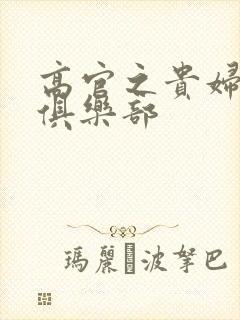 高官之貴婦
俱樂部
瑪麗 波拏巴